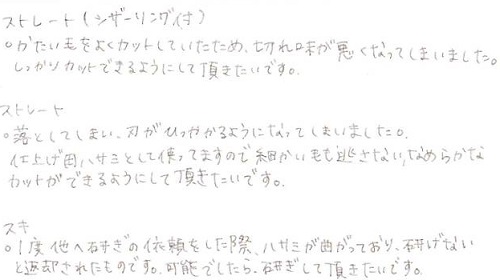 ストレート(シザーリング付)
○かたい毛をよくカットしていたため、切れ味が悪くなってしまいました。
しっかりカットできるようにして頂きたいです。
ストレート
○落としてしまい、刃がひっかかるようになってしまいました。
仕上げ用ハサミとして使ってますので細かい毛も逃さない、なめらかな
カットができるようにして頂きたいです。
スキ
○1度他へ研ぎの依頼をした際、ハサミが曲がっており、研げない
と返却されたものです。可能でしたら、研ぎして頂きたいです。